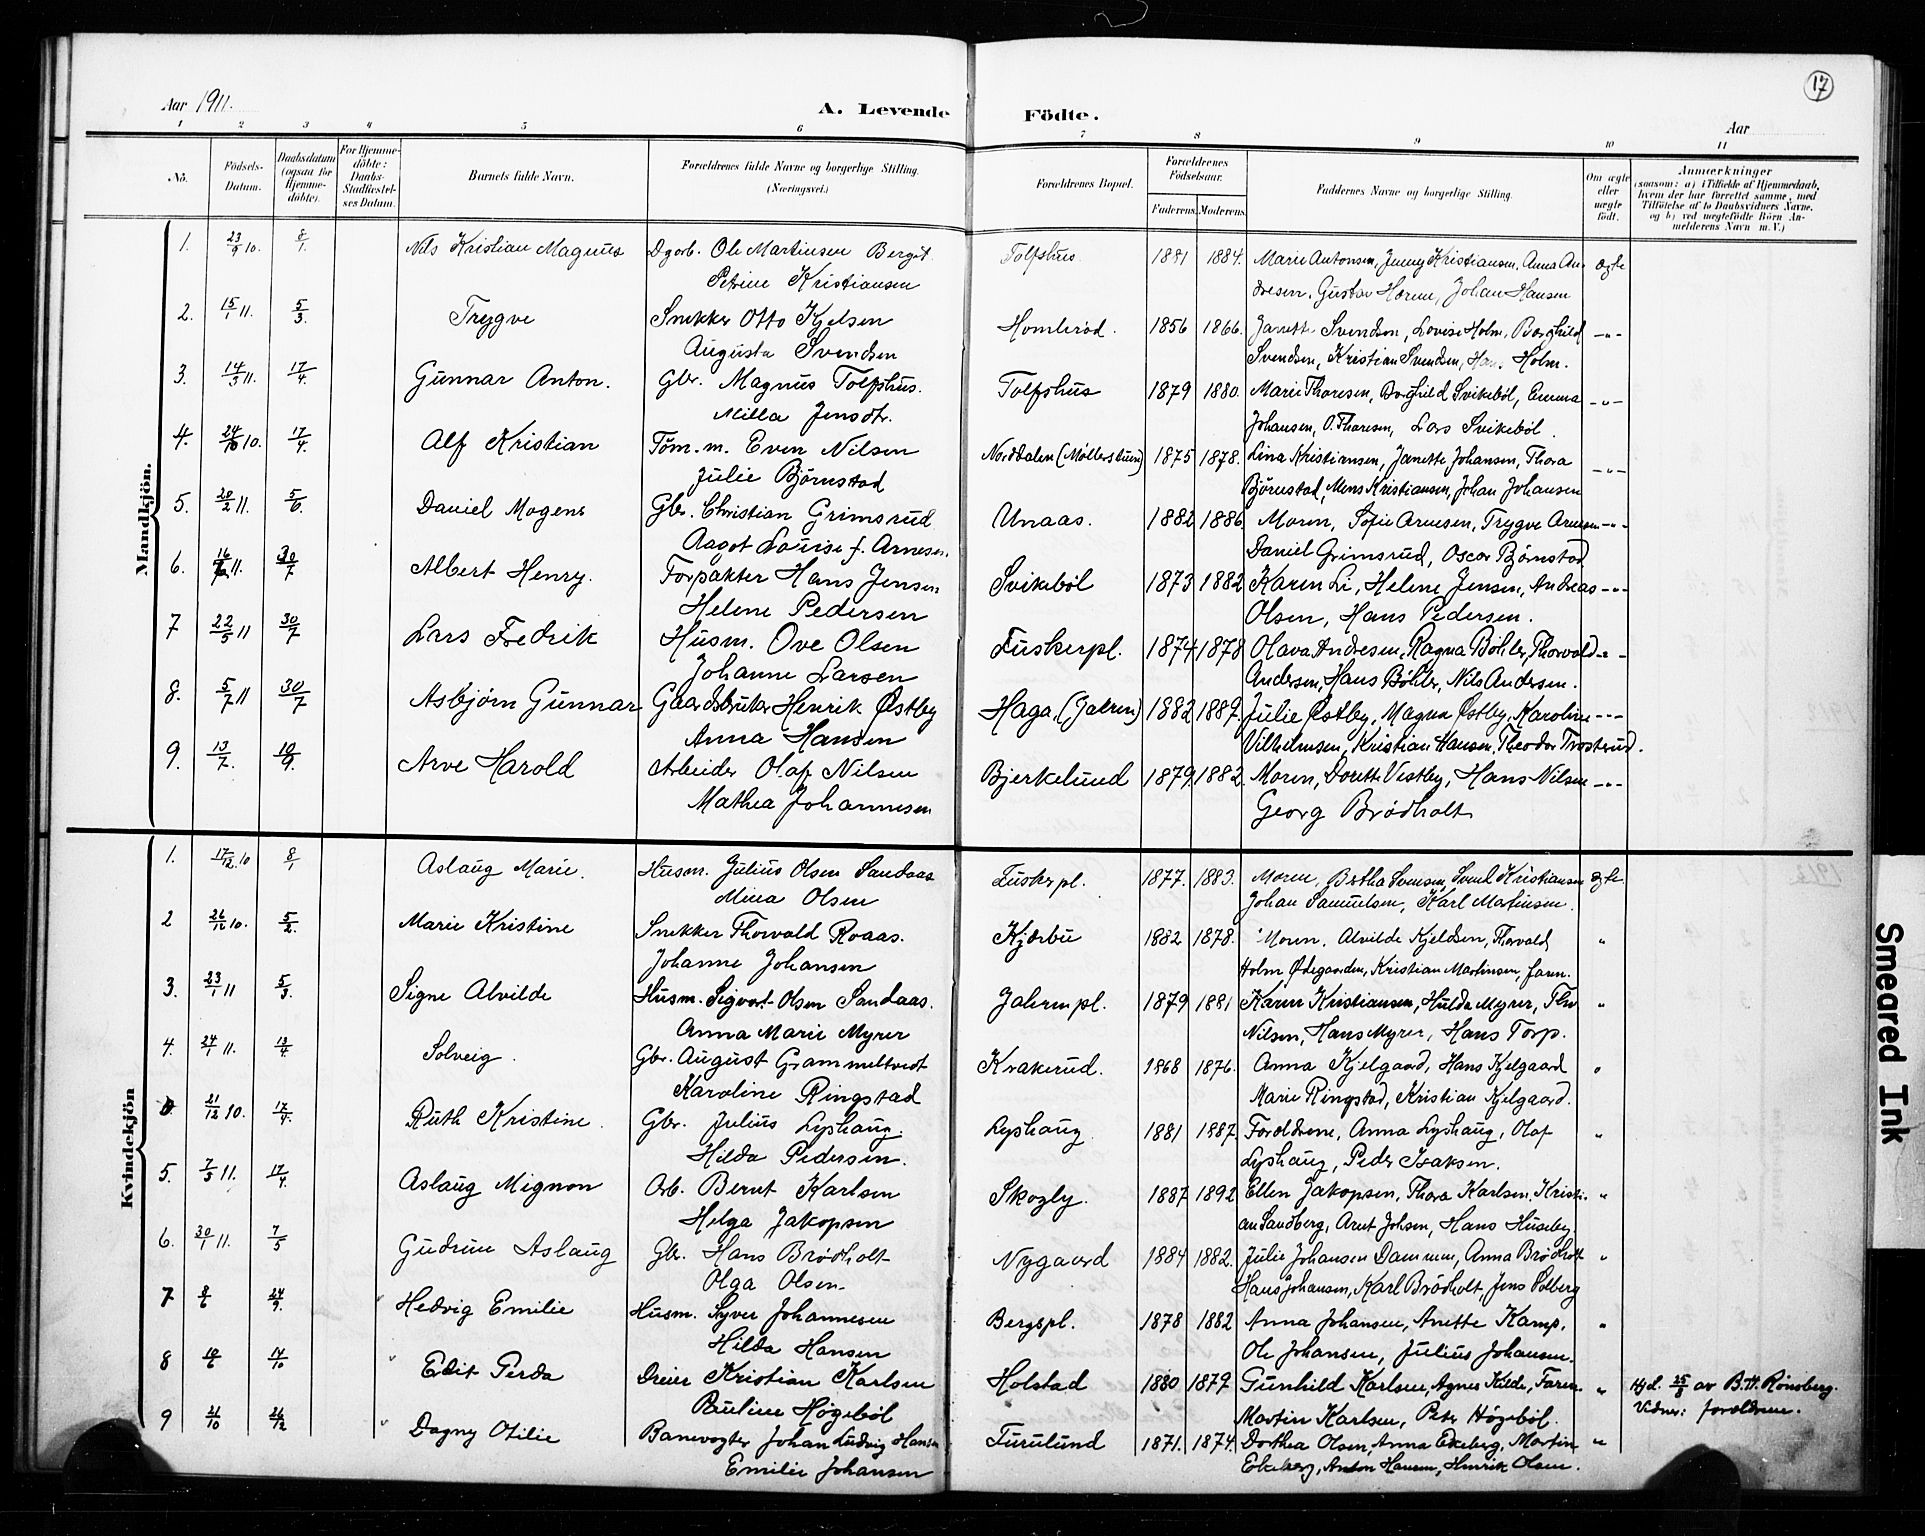 17
Aar 1911.
A. Levende Födte.
Aar
1 2 3 4 5 6 7 8 9 10 11
No.
Födsels-Datum.
Daabsdatum (ogsaa for Hjemme-döbte).
For Hjemme-döbte: Daabs-Stadfæstel-ses Datum.
Barnets fulde Navn.
Forældrenes fulde Navne og borgerlige Stilling. (Næringsvei.)
Forældrenes Bopæl.
Forældrenes Födselsaar.
Faderens. Moderens.
Faddernes Navne og borgerlige Stilling.
Om ægte eller uægte födt.
Anmærkninger
(saasom: a) i Tilfælde af Hjemmedaab, hvem der har forrettet samme, med Tilföielse af to Daabsvidners Navne, og b) ved uægtefödte Börn An-melderens Navn m. V.)
Mandkjön.
1. 23/9 10. 8/1. Nils Kristian Magnus Dgarb. Ole Martinsen Berget Tolfshus 1881 1884. Marie Antonsen, Jenny Kristiansen, Anna An- ægte
Petrine Kristiansen dresen, Gustav Horne, Johan Hansen
2. 15/1 11. 5/3. Trygve Snekker Otto Kjelsen Homlerød. 1856 1866. Janett Svendsen, Lovise Holm, Borghild -"-
Augusta Svendsen Svendsen, Kristian Svendsen, Hans Holm.
3. 14/3 11. 17/4. Gunnar Anton. Gbr. Magnus Tolfshus. Tolfshus 1879 1880. Marie Thoresen, Borghild Svikebøl, Emma -"-
Milla Jensdtr. Johansen, O. Thoresen, Lars Svikebøl.
4. 24/10 10. 17/4. Alf Kristian Tøm.m. Even Nilsen Norddalen (Møllerstuen) 1875 1878. Lina Kristiansen, Janette Johansen, Thora -"-
Julie Bjørnstad Bjørnstad, Mons Kristiansen, Johan Johansen
5. 20/2 11. 5/6. Daniel Mogens Gbr. Christian Grimsrud Unaas. 1882 1886. Moren, Sofie Arnesen, Trygve Arnesen -"-
Aagot Louise f. Arnesen. Daniel Grimsrud, Oscar Bjørnstad
6. 11. 30/7 Albert Henry. Forpakter Hans Jensen Svikebøl 1873 1882 Karen Li, Helene Jensen, Andreas -"-
Helene Pedersen Olsen, Hans Pedersen.
7 22/5 11 30/7 Lars Fredrik Husm. Ove Olsen Fuskerpl. 1874 1878 Olava Andresen, Ragna Bøhler, Thorvald -"-
Johanne Larsen Andersen, Hans Bøhler, Nils Andersen.
8. 5/7 11 30/7 Asbjørn Gunnar Gaardsbruker Henrik Østby Haga, (Jalren) 1882 1887. Julie Østby, Magna Østby, Karoline -"-
Anna Hansen Vilhelmsen, Kristian Hansen, Theodor Trosterud.
9. 13/7. 10/9. Arve Harold Arbeider Olaf Nilsen Bjerkelund 1879 1882. Moren, Dorette Vestby, Hans Nilsen -"-
Mathea Johannesen Georg Brødholt
Kvindekjön
1. 17/12. 10 8/1 Aslaug Marie. Husm. Julius Olsen Sandaas Fuskerpl. 1877. 1883. Moren, Bertha Svensen, Svend Kristiansen ægte.
Mina Olsen Johan Samuelsen, Karl Matinsen.
2 26/12 10. 5/2. Marie Kristine Snekker Thorvald Roaas. Kjærbu 1882 1878. Moren, Alvilde Kjeldsen, Thorvald "
Johanne Johansen Holm Ødegaarden, Kristian Martinsen, faren.
3. 23/1 11 5/3. Signe Alvilde Husm. Sigvart Olsen Sandaas. Jalernpl. 1879 1881 Karen Kristiansen, Hulda Myrer, Thv. "
Anna Marie Myrer Nilsen, Hans Myrer, Hans Torp.
4. 24/1 11. 13/4. Solveig. Gbr. August Grammeltvedt Krakerud. 1868 1876. Anna Kjelgaard, Hans Kjelgaard "
Karoline Ringstad Marie Ringstad, Kristian Kjelgaard.
21/12 10. 17/4. Ruth Kristine. Gbr. Julius Lyshaug. Lyshaug 1881 1887. Forældrene, Anna Lyshaug, Olaf "
Hilda Pedersen. Lyshaug, Peder Isaksen.
5. 7/3 11. 17/4. Aslaug Mignon Arb. Bernt Karlsen Skogly. 1887 1892 Ellen Jakopsen, Thora Karlsen, Kristi- "
Helga Jakopsen an Sandberg, Arnt Johsen, Hans Huseby.
6. 30/1 11. 7/5 Gudrun Aslaug Gbr. Hans Brødholt Nygaard 1884 1882. Julie Johansen Dammen, Anna Brødholt "
Olga Olsen Hans Johansen, Karl Brødholt, Jens Solberg
7 8/6 24/9. Hedvig Emilie Husm. Syver Johannesen Bergspl. 1878 1882 Anna Johansen, Anette Kamp, "
Hilda Hansen Ole Johansen, Julius Johansen.
8 10/6 14/10 Edit Gerda Dreier Kristian Karlsen Holstad 1880 1879 Gunhild Karlsen, Agnes Kilde, Faren " Hjd. 25/8 av B. H. Rønsberg.
Pauline Høgebøl Martin Karlsen, Peter Høgebøl. Vidner: forældrene.
9 21/10 26/12 Dagny Otilie Banevogter Johan Ludvig Hansen Furulund 1871. 1874. Dorthea Olsen, Anna Ekeberg, Martin "
Emilie Johansen Ekeberg, Anton Hansen, Henrik Olsen.
Smeared Ink